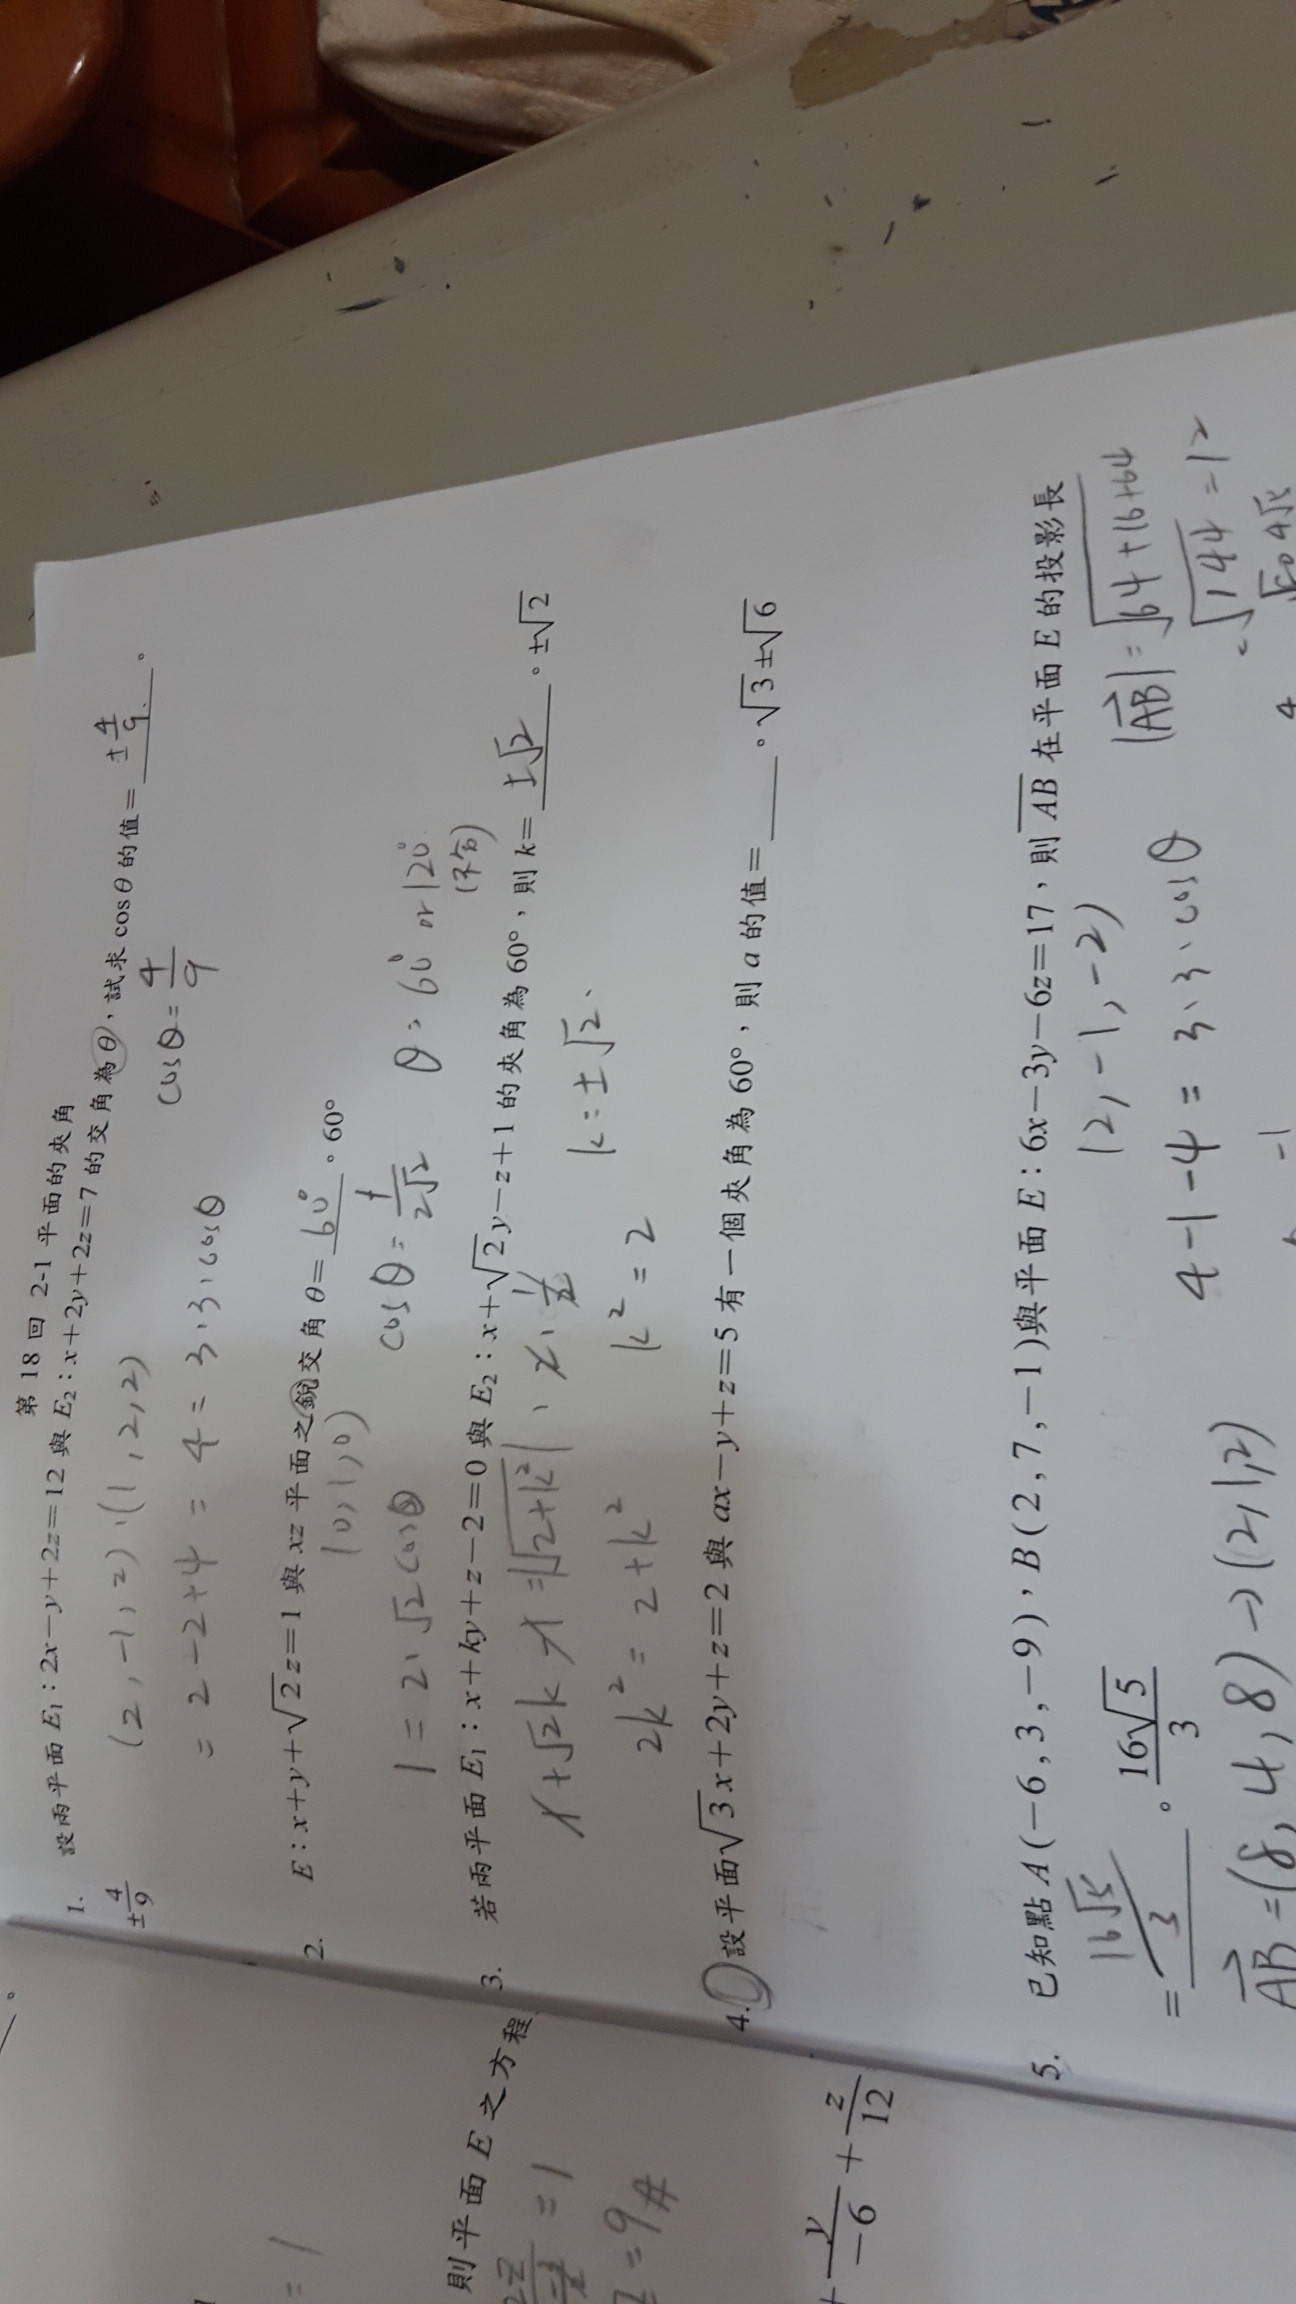 第 18 回 2-1 平面的夾角
1. 設兩平面 E₁：2x−y+2z=12 與 E₂：x+2y+2z=7 的交角為θ，試求 cosθ 的值= ±4/9 。
±4/9
(2,-1,2)·(1,2,2)
cosθ=4/9
=2-2+4=4=3·3·cosθ
2. E：x+y+√2z=1 與 xz 平面之銳交角 θ= 60° 。60°
(0,1,0)
1=2·√2cosθ
cosθ=1/2√2
θ=60° or 120°
(不合)
3. 若兩平面 E₁：x+ky+z−2=0 與 E₂：x+√2y−z+1 的夾角為 60°，則 k= ±√2 。±√2
2k²=2+k²
k²=2
k=±√2
4. 設平面√3x+2y+z=2 與 ax−y+z=5 有一個夾角為 60°，則 a 的值= 。√3±√6
5. 已知點 A(−6,3,−9)，B(2,7,−1)與平面 E：6x−3y−6z=17，則 AB 在平面 E 的投影長
(2,-1,-2)
= 16√5/3 。16√5/3
|AB|=√64+16+64
=√144=12
AB=(8,4,8)→(2,1,2)
4-1-4=3·3·cosθ
則平面 E 之方程
=1
=9#
y/−6+z/12